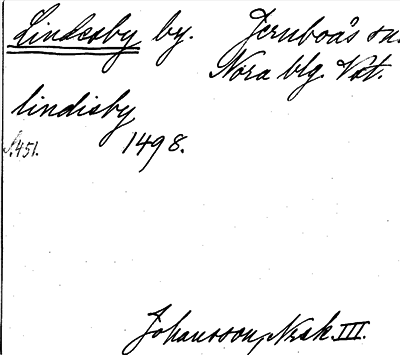 Lindesby by. Jernboås sn.
Nora blg. Vst.
lindisby
S.451. 1498.
Johansson, Nsk. III.